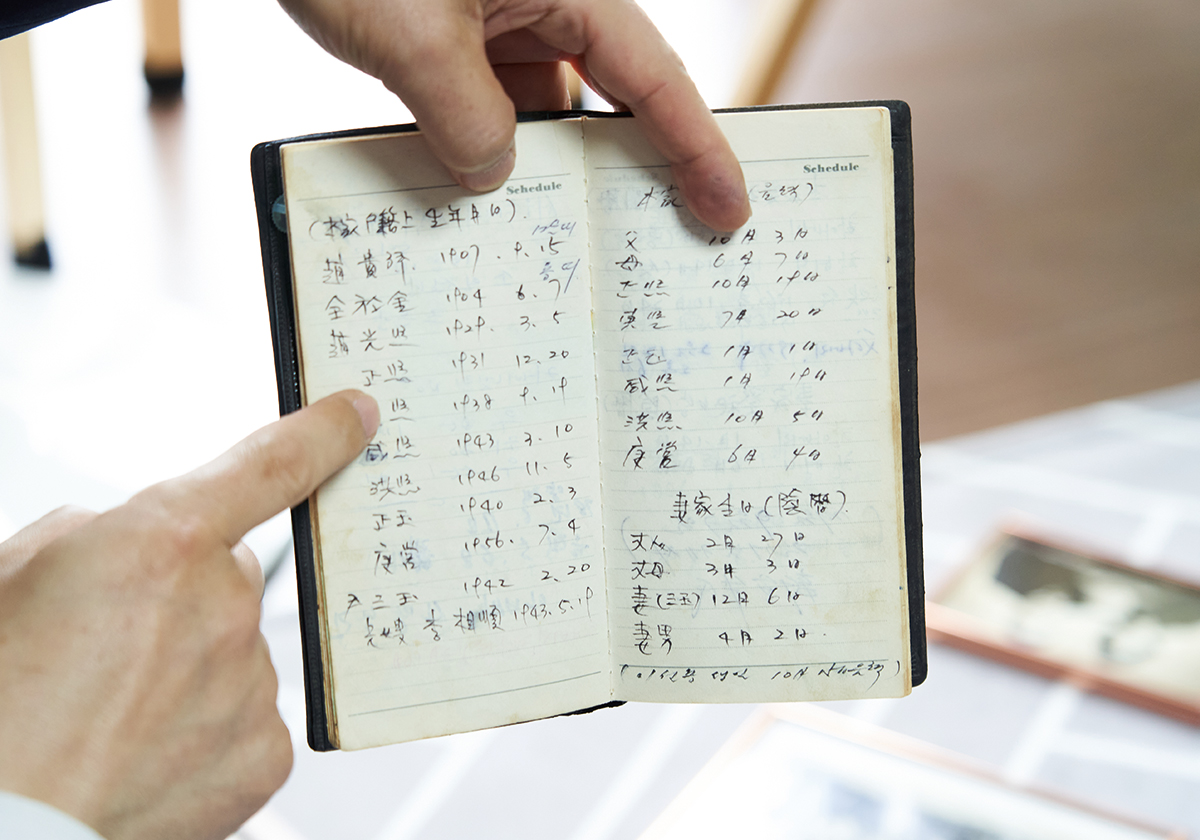 Schedule
(本家 戶籍上 生年月日).
趙 貴 1907. 9. 15
全 金 1904 6. 7
趙 光熙 1929. 3. 5
正熙 1931 12. 20
熙 1938 9. 19
咸熙 1943 3. 10
洪熙 1946 11. 5
正玉 1940 2. 3
庚營 1956. 7. 4
三玉 1942 2. 20
兄嫂 李相順 1943. 5. 19
Schedule
本家 (음력)
父 10月 3日
母 6月 7日
光熙 10月 19日
熙 7月 20日
正玉 1月 1日
咸熙 1月 19日
洪熙 10月 5日
庚營 6月 4日
妻家 生日 (陰曆).
丈人 2月 27日
丈母 3月 3日
妻(三玉) 12月 6日
妻男 4月 2日.
10月